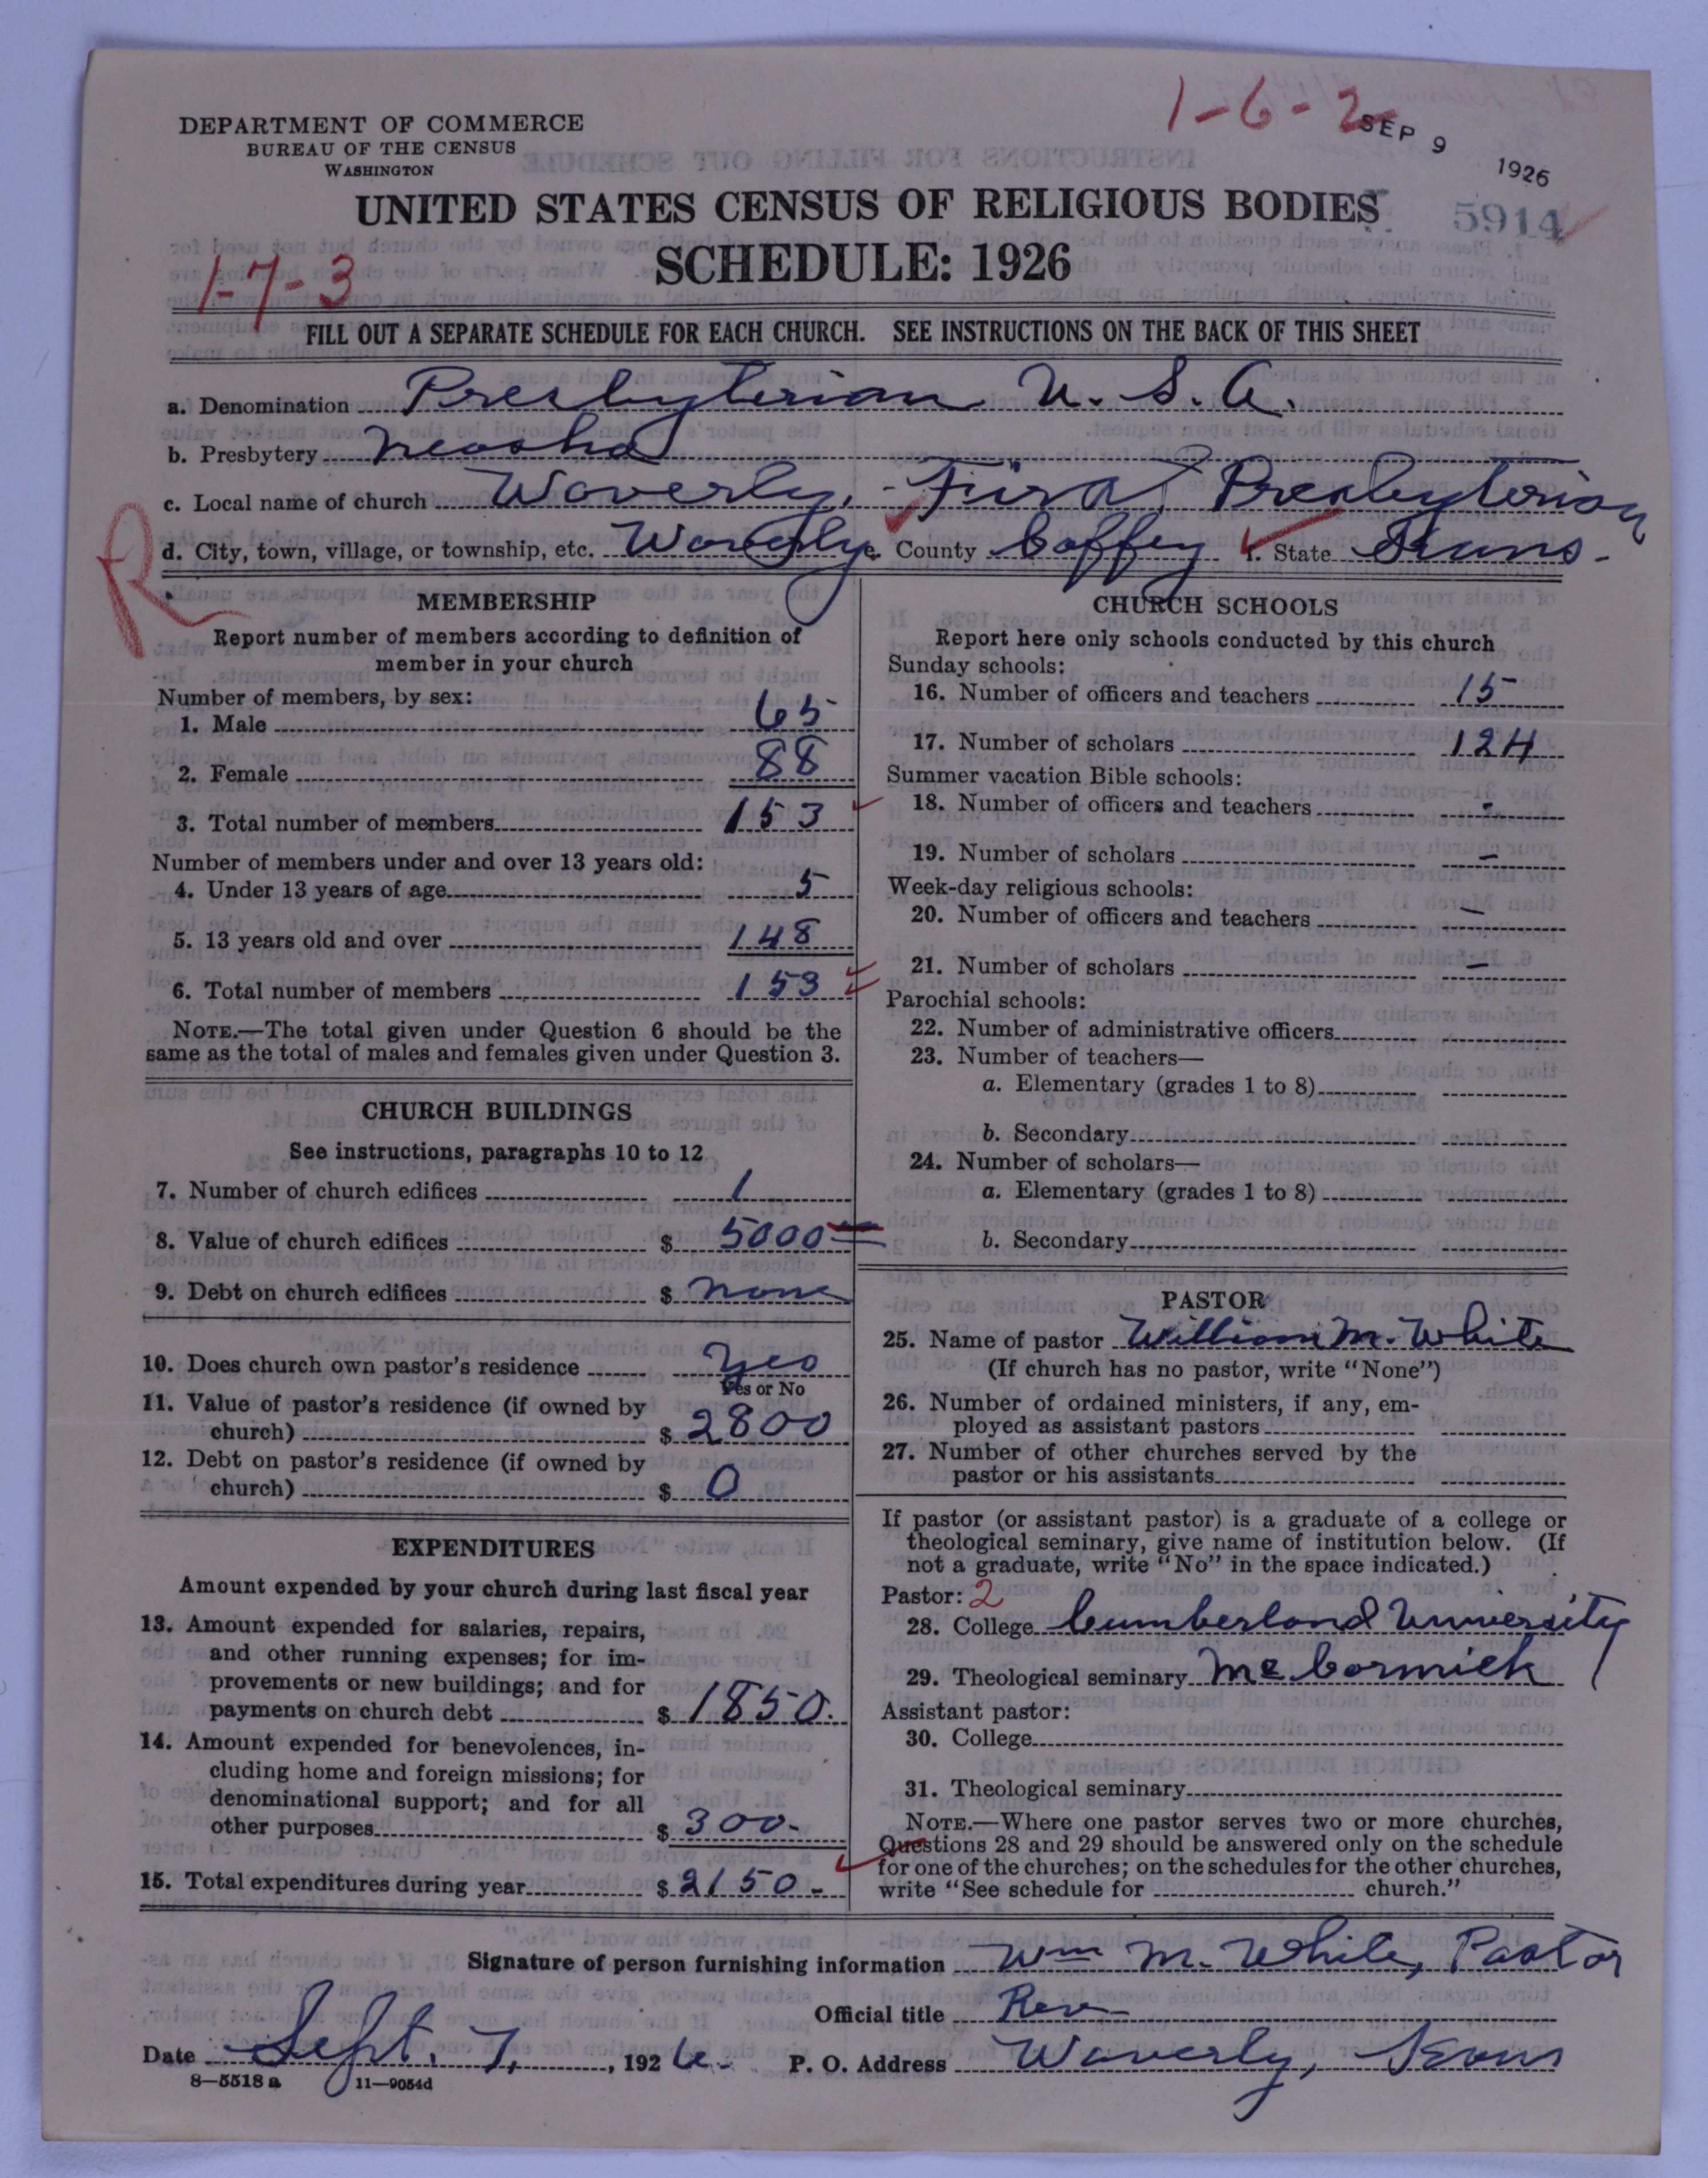 1-6-2
SEP 9 1926
DEPARTMENT OF COMMERCE
BUREAU OF THE CENSUS
WASHINGTON
UNITED STATES CENSUS OF RELIGIOUS BODIES
5914
SCHEDULE: 1926
1-7-3
FILL OUT A SEPARATE SCHEDULE FOR EACH CHURCH. SEE INSTRUCTIONS ON THE BACK OF THIS SHEET
a. Denomination Presbyterian U. S. A.
b. Presbytery Neosho
c. Local name of church Waverly, - First Presbyterian
d. City, town, village, or township, etc. Waverly e. County Coffey f. State Kans.
R
MEMBERSHIP
Report number of members according to definition of
member in your church
Number of members, by sex:
1. Male 65
2. Female 88
3. Total number of members 153
Number of members under and over 13 years old:
4. Under 13 years of age 5
5. 13 years old and over 148
6. Total number of members 153
NOTE.—The total given under Question 6 should be the
same as the total of males and females given under Question 3.
CHURCH BUILDINGS
See instructions, paragraphs 10 to 12
7. Number of church edifices 1
8. Value of church edifices $ 5000
9. Debt on church edifices $ none
10. Does church own pastor's residence Yes
Yes or No
11. Value of pastor's residence (if owned by
church) $ 2800
12. Debt on pastor's residence (if owned by
church) $ 0
EXPENDITURES
Amount expended by your church during last fiscal year
13. Amount expended for salaries, repairs,
and other running expenses; for im-
provements or new buildings; and for
payments on church debt $ 1850.
14. Amount expended for benevolences, in-
cluding home and foreign missions; for
denominational support; and for all
other purposes $ 300.-
15. Total expenditures during year $ 2150.-
CHURCH SCHOOLS
Report here only schools conducted by this church
Sunday schools:
16. Number of officers and teachers 15
17. Number of scholars 124
Summer vacation Bible schools:
18. Number of officers and teachers -
19. Number of scholars -
Week-day religious schools:
20. Number of officers and teachers -
21. Number of scholars -
Parochial schools:
22. Number of administrative officers
23. Number of teachers—
a. Elementary (grades 1 to 8)
b. Secondary
24. Number of scholars—
a. Elementary (grades 1 to 8)
b. Secondary
PASTOR
25. Name of pastor William M. White
(If church has no pastor, write "None")
26. Number of ordained ministers, if any, em-
ployed as assistant pastors
27. Number of other churches served by the
pastor or his assistants
If pastor (or assistant pastor) is a graduate of a college or
theological seminary, give name of institution below. (If
not a graduate, write "No" in the space indicated.)
Pastor: 2
28. College Cumberland University
29. Theological seminary McCormick
Assistant pastor:
30. College
31. Theological seminary
NOTE.—Where one pastor serves two or more churches,
Questions 28 and 29 should be answered only on the schedule
for one of the churches; on the schedules for the other churches,
write "See schedule for church."
Signature of person furnishing information Wm M. White, Pastor
Official title Rev
Date Sept. 7, 1926. P. O. Address Waverly, Kans
8—5518 a 11—9054d